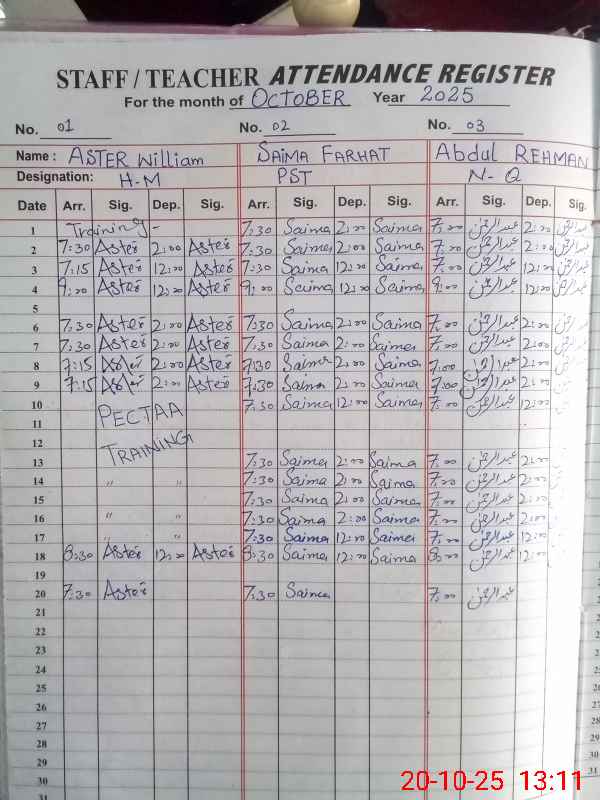 STAFF / TEACHER ATTENDANCE REGISTER
For the month of OCTOBER Year 2025
No. 01 No. 02 No. 03
Name : ASTER William SAIMA FARHAT Abdul REHMAN
Designation: H-M PST N-Q
Date Arr. Sig. Dep. Sig. Arr. Sig. Dep. Sig. Arr. Sig. Dep. Sig.
1 Training - 7:30 Saima 2:00 Saima 7:00 عبدالرحمٰن 2:00
2 7:30 Aster 2:00 Aster 7:30 Saima 2:00 Saima 7:00 عبدالرحمٰن 2:00
3 7:15 Aster 12:00 Aster 7:30 Saima 12:00 Saima 7:00 عبدالرحمٰن 12:00
4 9:00 Aster 12:00 Aster 9:00 Saima 12:00 Saima 9:00 عبدالرحمٰن 12:00
5
6 7:30 Aster 2:00 Aster 7:30 Saima 2:00 Saima 7:00 عبدالرحمٰن 2:00
7 7:30 Aster 2:00 Aster 7:30 Saima 2:00 Saima 7:00 عبدالرحمٰن 2:00
8 7:15 Aster 2:00 Aster 7:30 Saima 2:00 Saima 7:00 2:00
9 7:15 Aster 2:00 Aster 7:30 Saima 2:00 Saima 7:00 2:00
10 7:30 Saima 12:00 Saima 7:00 عبدالرحمٰن 12:00
11 PECTAA
12
13 TRAINING 7:30 Saima 2:00 Saima 7:00 عبدالرحمٰن 2:00
14 " " 7:30 Saima 2:00 Saima 7:00 عبدالرحمٰن 2:00
15 7:30 Saima 2:00 Saima 7:00 عبدالرحمٰن 2:00
16 " " 7:30 Saima 2:00 Saima 7:00 عبدالرحمٰن 2:00
17 " " 7:30 Saima 12:00 Saima 7:00 عبدالرحمٰن 12:00
18 8:30 Aster 12:00 Aster 8:30 Saima 12:00 Saima 8:00 عبدالرحمٰن 12:00
19
20 7:30 Aster 7:30 Saima 7:00 عبدالرحمٰن
21
22
23
24
25
26
27
28
29
30
31
20-10-25 13:11